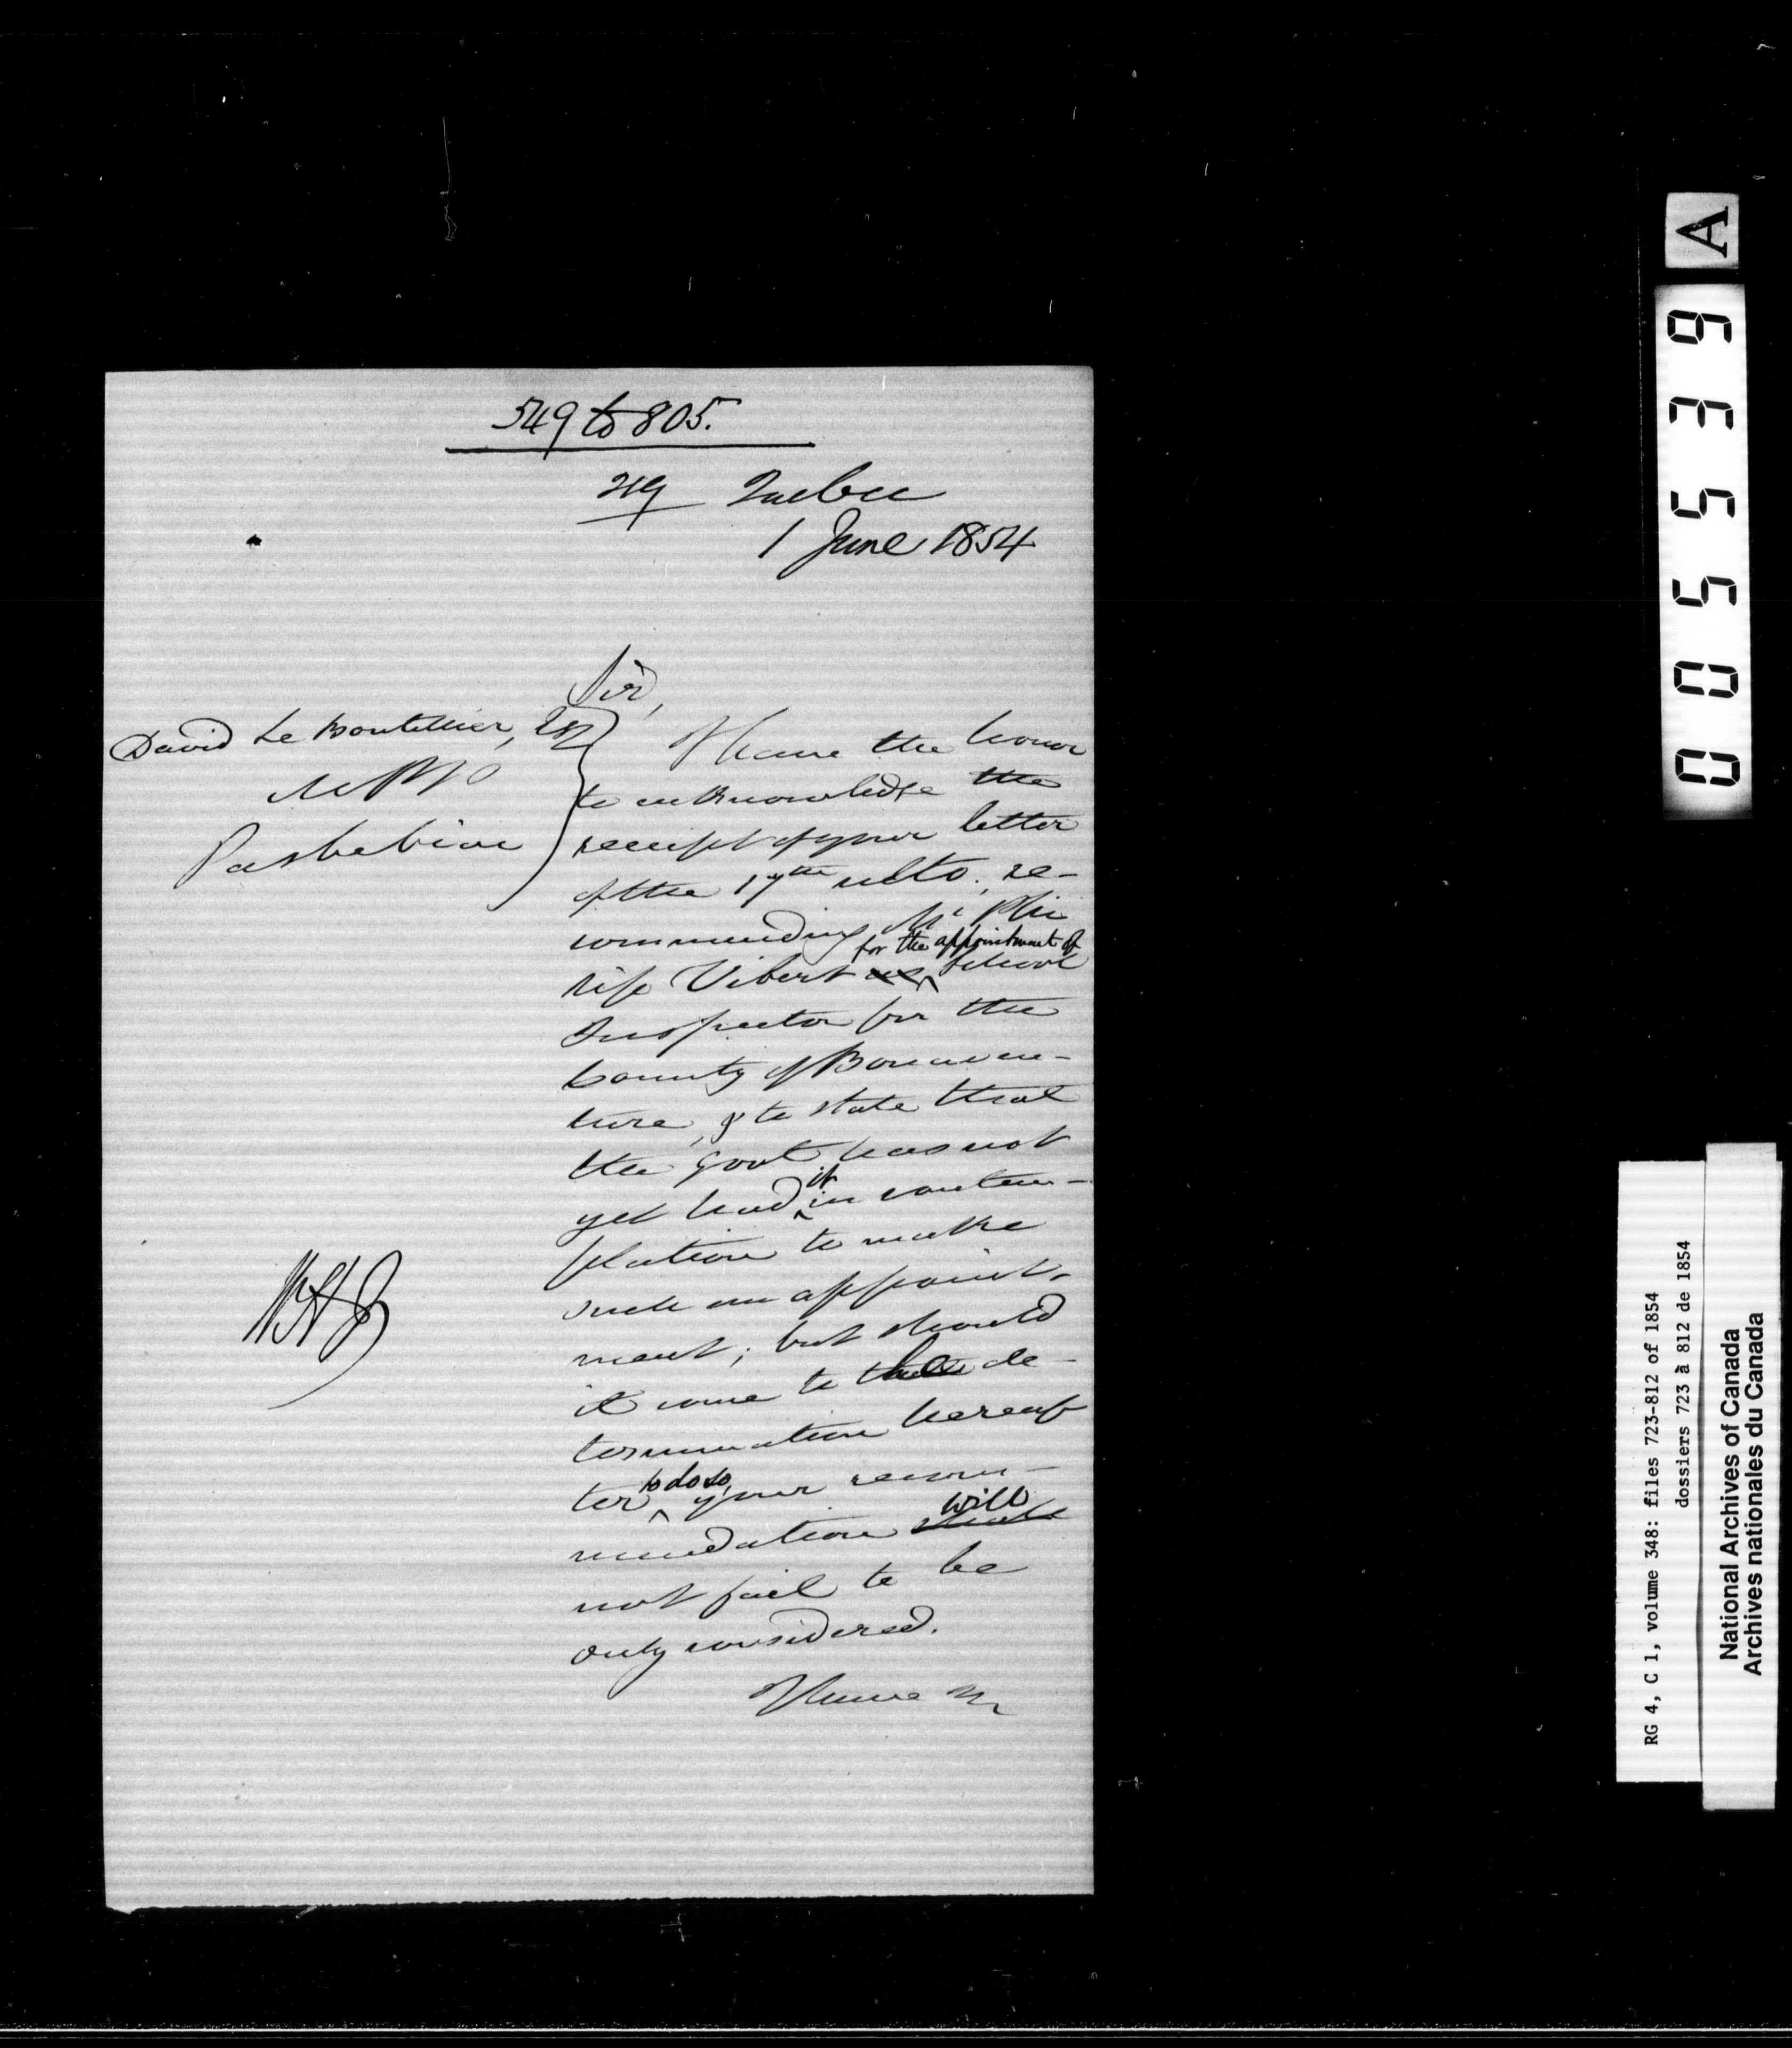 549 to 805.
Quebec
1 June 1854
Sir,
David Le Boutillier, Esq
MPP
Pasbebiac
I have the honor
to acknowledge the
receipt of your letter
of the 17th ulto., re-
commending Mr Phi
for the appointment of
lip Vibert as School
Inspector for the
County of Bonaven-
ture, & to state that
the Govt has not
yet had it in contem-
plation to make
such an appoint-
ment; but should
it come to the de-
termination hereaf
ter to do so, your recom-
mendation will
not fail to be
duly considered.
I have
WHG
A
05539
RG 4, C 1, volume 348: files 723-812 of 1854
dossiers 723 à 812 de 1854
National Archives of Canada
Archives nationales du Canada